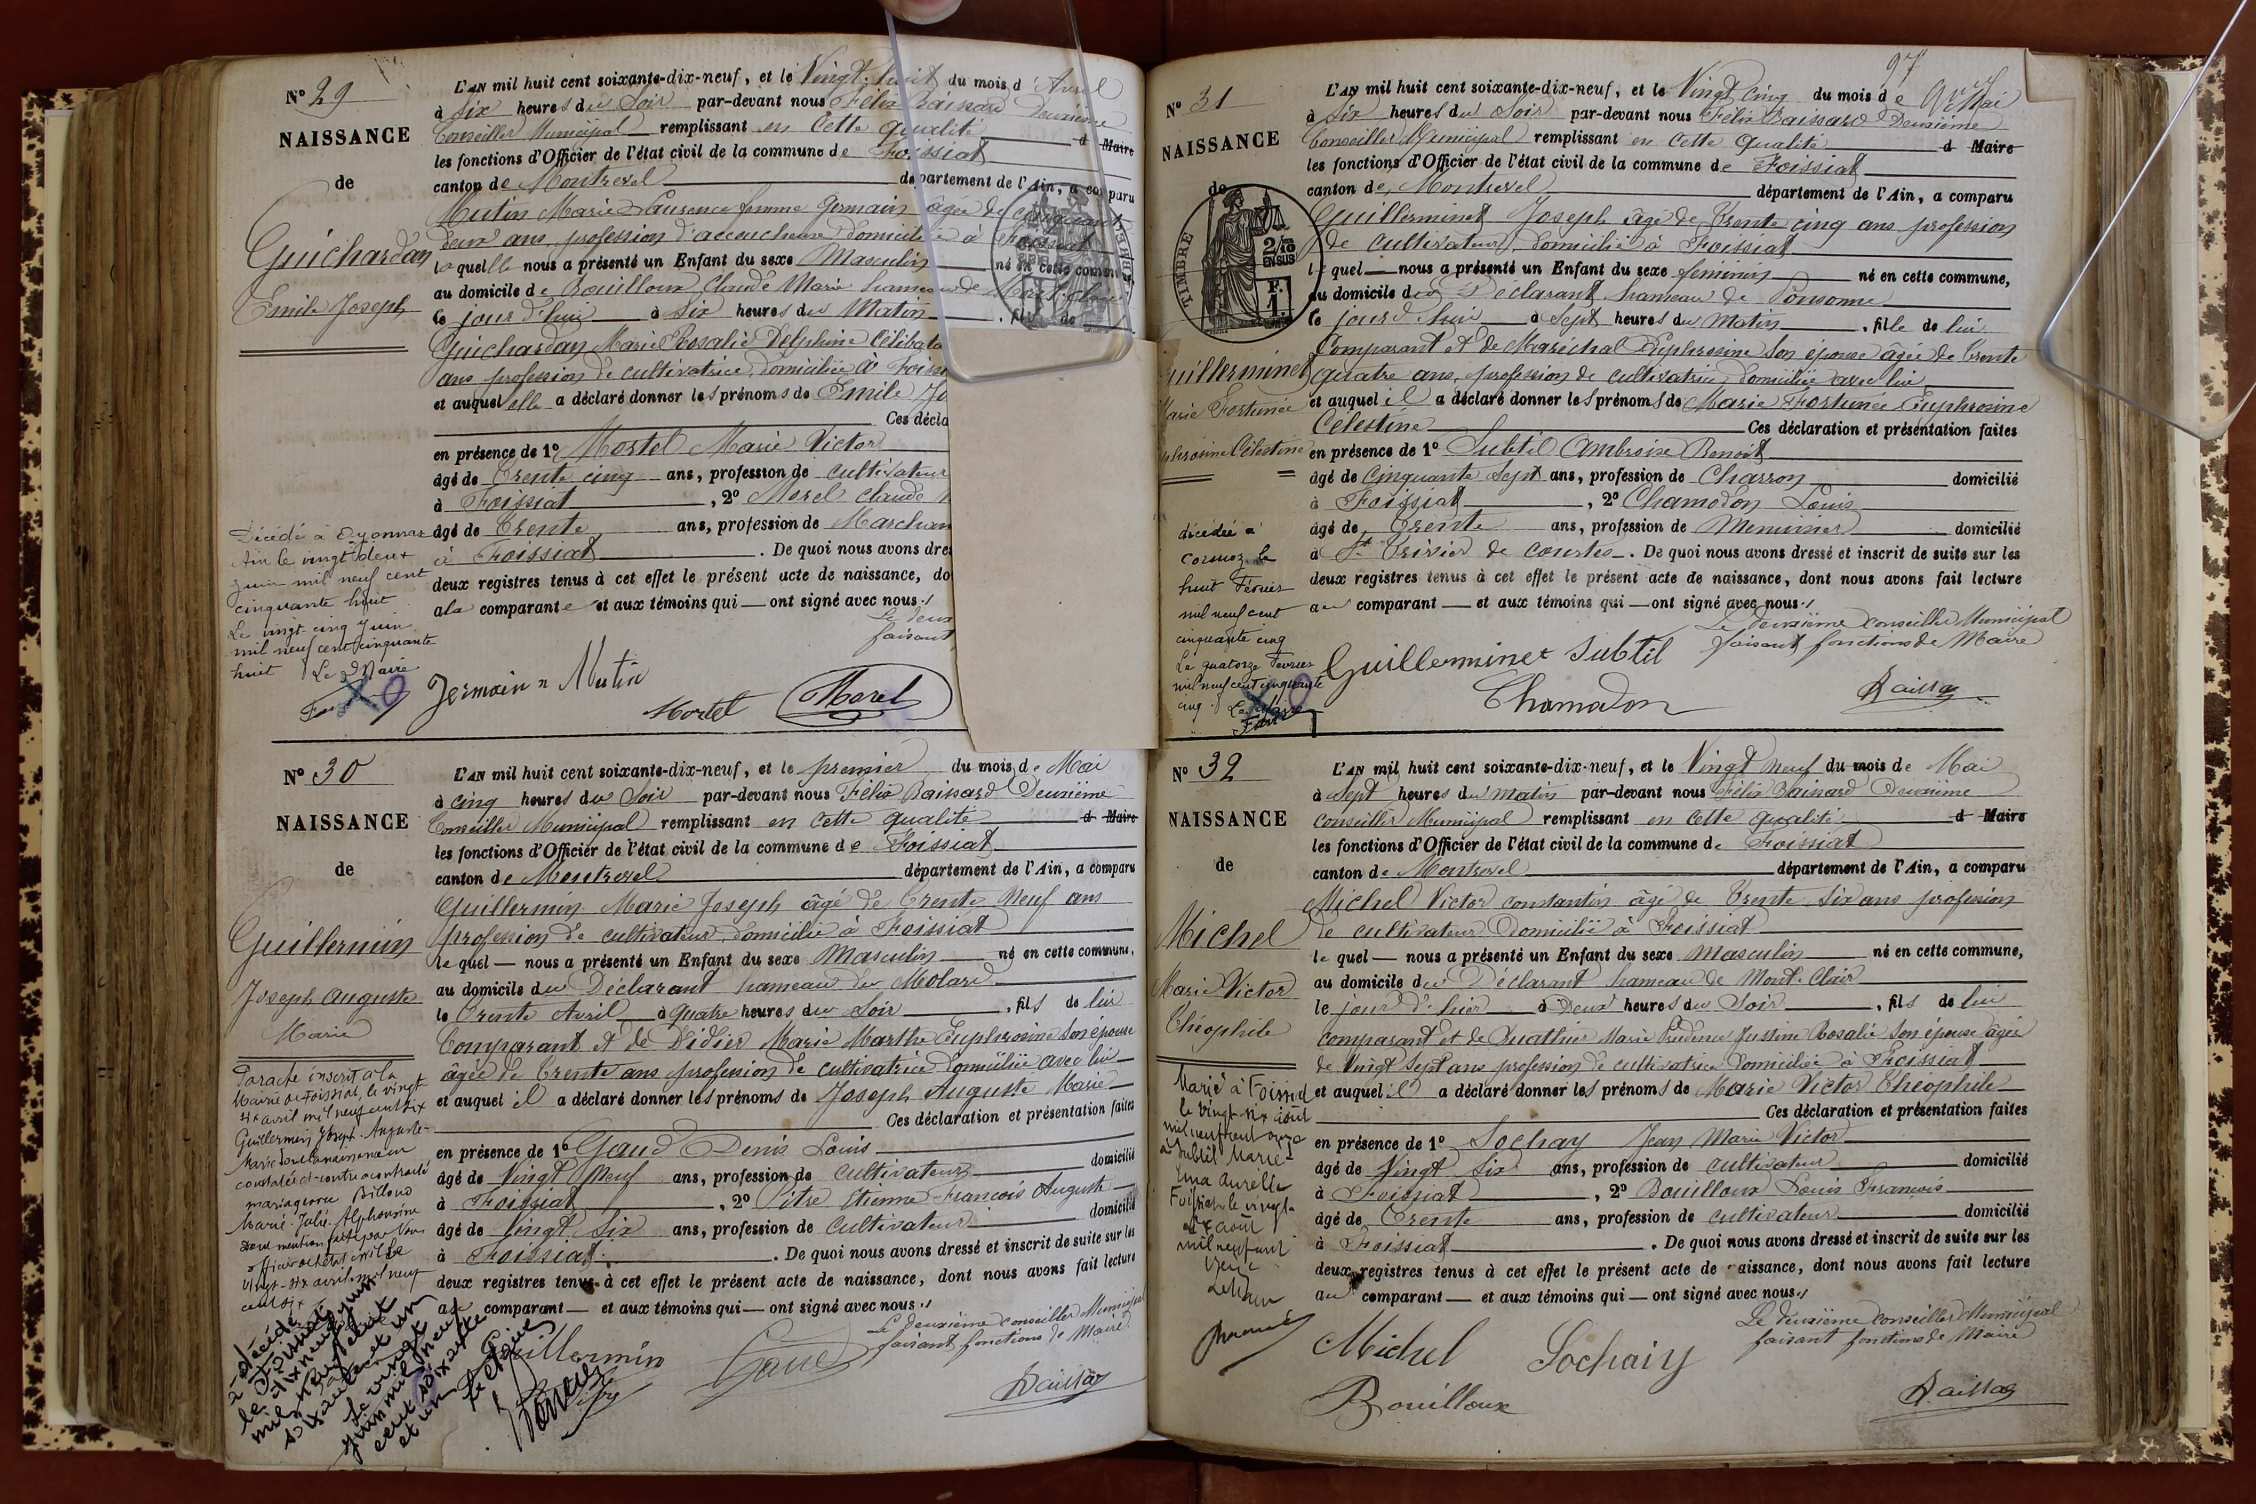 N° 29
NAISSANCE
de
Guichardan
Emile Joseph
L'AN mil huit cent soixante-dix-neuf, et le Vingt-huit du mois d'Avril
à Six heures du Soir par-devant nous Félix Baissard Deuxième
Conseiller Municipal remplissant en cette qualité d Maire
les fonctions d'Officier de l'état civil de la commune de Foissiat
canton de Montrevel département de l'Ain, a comparu
Mutin Marie Laurence femme Germain âgée de cinquante
deux ans, profession d'accoucheuse domiciliée à Foissiat
laquelle nous a présenté un Enfant du sexe Masculin né en cette commune
au domicile de Bouilloux Claude Marie hameau de
le jour d'hui à Six heures du Matin, fils de
Guichardan Marie Rosalie Delphine Célibata
ans profession de cultivatrice domiciliée à Foiss
et auquel elle a déclaré donner les prénoms de Emile Jo
Ces décla
en présence de 1° Mortel Marie Victor
âgé de Trente cinq ans, profession de cultivateur
à Foissiat, 2° Morel Claude
âgé de Trente ans, profession de Marchan
à Foissiat. De quoi nous avons dre
deux registres tenus à cet effet le présent acte de naissance, do
à la comparante et aux témoins qui ont signé avec nous
Le deux
faisant
Germain n Mutin
Mortel
Morel
Décédé à Oyonnax
Ain le vingt deux
juin mil neuf cent
cinquante huit
Le vingt-cinq juin
mil neuf cent cinquante
huit Le Maire
N° 30
NAISSANCE
de
Guillermin
Joseph Auguste
Marie
L'AN mil huit cent soixante-dix-neuf, et le premier du mois de Mai
à cinq heures du Soir par-devant nous Félix Baissard Deuxième
Conseiller Municipal remplissant en cette qualité d Maire
les fonctions d'Officier de l'état civil de la commune de Foissiat
canton de Montrevel département de l'Ain, a comparu
Guillermin Marie Joseph âgé de Trente Neuf ans
profession de cultivateur domicilié à Foissiat
lequel nous a présenté un Enfant du sexe Masculin né en cette commune,
au domicile du Déclarant hameau du Molard
le Trente Avril à quatre heures du Soir, fils de lui
Comparant et de Didier Marie Marthe Euphrosine Son épouse
âgée de Trente ans profession de cultivatrice domiciliée avec lui
et auquel il a déclaré donner les prénoms de Joseph Auguste Marie
Ces déclaration et présentation faites
en présence de 1° Gaud Denis Louis
âgé de Vingt Neuf ans, profession de cultivateur domicilié
à Foissiat, 2° Pitre Etienne François Auguste
âgé de Vingt Six ans, profession de Cultivateur domicilié
à Foissiat. De quoi nous avons dressé et inscrit de suite sur les
deux registres tenus à cet effet le présent acte de naissance, dont nous avons fait lecture
au comparant et aux témoins qui ont signé avec nous
Le deuxième conseiller Municipal
faisant fonctions de Maire
Guillermin
Gaud
Baissard
Par acte inscrit à la
Mairie de Foissiat, le vingt
six avril mil neuf cent six
Guillermin Joseph-Auguste-
Marie dont la naissance est
constatée ci-contre a contracté
mariage avec Billoud
Marie-Julie-Alphonsine
Dont mention faite par Nous
officier de l'état civil le
vingt-six avril mil neuf
cent six
a décédé
à Foissiat
le dix neuf juin
mil neuf cent
soixante et un
Le vingt
juin mil neuf
cent soixante
et un
97
N° 31
NAISSANCE
de
TIMBRE
2/10 EN SUS
Guillerminet
Marie Fortunée
Euphrosine Célestine
L'AN mil huit cent soixante-dix-neuf, et le Vingt cinq du mois de Mai
à Six heures du Soir par-devant nous Félix Baissard Deuxième
Conseiller Municipal remplissant en cette qualité d Maire
les fonctions d'Officier de l'état civil de la commune de Foissiat
canton de Montrevel département de l'Ain, a comparu
Guillerminet Joseph âgé de Trente cinq ans profession
de cultivateur, domicilié à Foissiat
lequel nous a présenté un Enfant du sexe féminin né en cette commune,
au domicile du Déclarant hameau de Ponsonne
le jour d'hui à Sept heures du Matin, fille de lui
Comparant et de Maréchal Euphrosine Son épouse âgée de Trente
quatre ans, profession de cultivatrice domiciliée avec lui
et auquel il a déclaré donner les prénoms de Marie Fortunée Euphrosine
Célestine Ces déclaration et présentation faites
en présence de 1° Subtil Ambroise Benoit
âgé de Cinquante Sept ans, profession de Charron domicilié
à Foissiat, 2° Chamodon Louis
âgé de Trente ans, profession de Menuisier domicilié
à St Trivier de courtes. De quoi nous avons dressé et inscrit de suite sur les
deux registres tenus à cet effet le présent acte de naissance, dont nous avons fait lecture
au comparant et aux témoins qui ont signé avec nous
Le deuxième conseiller Municipal
faisant fonctions de Maire
Guillerminet Subtil
Chamodon
Baissard
décédée à
Cormoz le
huit Février
mil neuf cent
cinquante cinq
Le quatorze Février
mil neuf cent cinquante
cinq. Le Maire
N° 32
NAISSANCE
de
Michel
Marie Victor
Théophile
L'AN mil huit cent soixante-dix-neuf, et le Vingt neuf du mois de Mai
à Sept heures du matin par-devant nous Félix Baissard Deuxième
conseiller Municipal remplissant en cette qualité d Maire
les fonctions d'Officier de l'état civil de la commune de Foissiat
canton de Montrevel département de l'Ain, a comparu
Michel Victor constantin âgé de Trente Six ans profession
de cultivateur Domicilié à Foissiat
lequel nous a présenté un Enfant du sexe Masculin né en cette commune,
au domicile du Déclarant hameau de Mont-Clair
le jour d'hier à Deux heures du Soir, fils de lui
comparant et de Quathier Marie Prudence Justine Rosalie Son épouse âgée
de Vingt Sept ans profession de cultivatrice Domiciliée à Foissiat
et auquel il a déclaré donner les prénoms de Marie Victor Théophile
Ces déclaration et présentation faites
en présence de 1° Sochay Jean Marie Victor
âgé de Vingt Six ans, profession de cultivateur domicilié
à Foissiat, 2° Bouilloux Louis François
âgé de Trente ans, profession de cultivateur domicilié
à Foissiat. De quoi nous avons dressé et inscrit de suite sur les
deux registres tenus à cet effet le présent acte de naissance, dont nous avons fait lecture
au comparant et aux témoins qui ont signé avec nous
Le deuxième conseiller Municipal
faisant fonctions de Maire
Michel Sochaiy
Bouilloux
Baissard
Marié à Foissiat
le vingt-six août
mil neuf cent onze
à Subtil Marie-
Lina Aurélie
Foissiat le vingt-
six août
mil neuf cent
onze